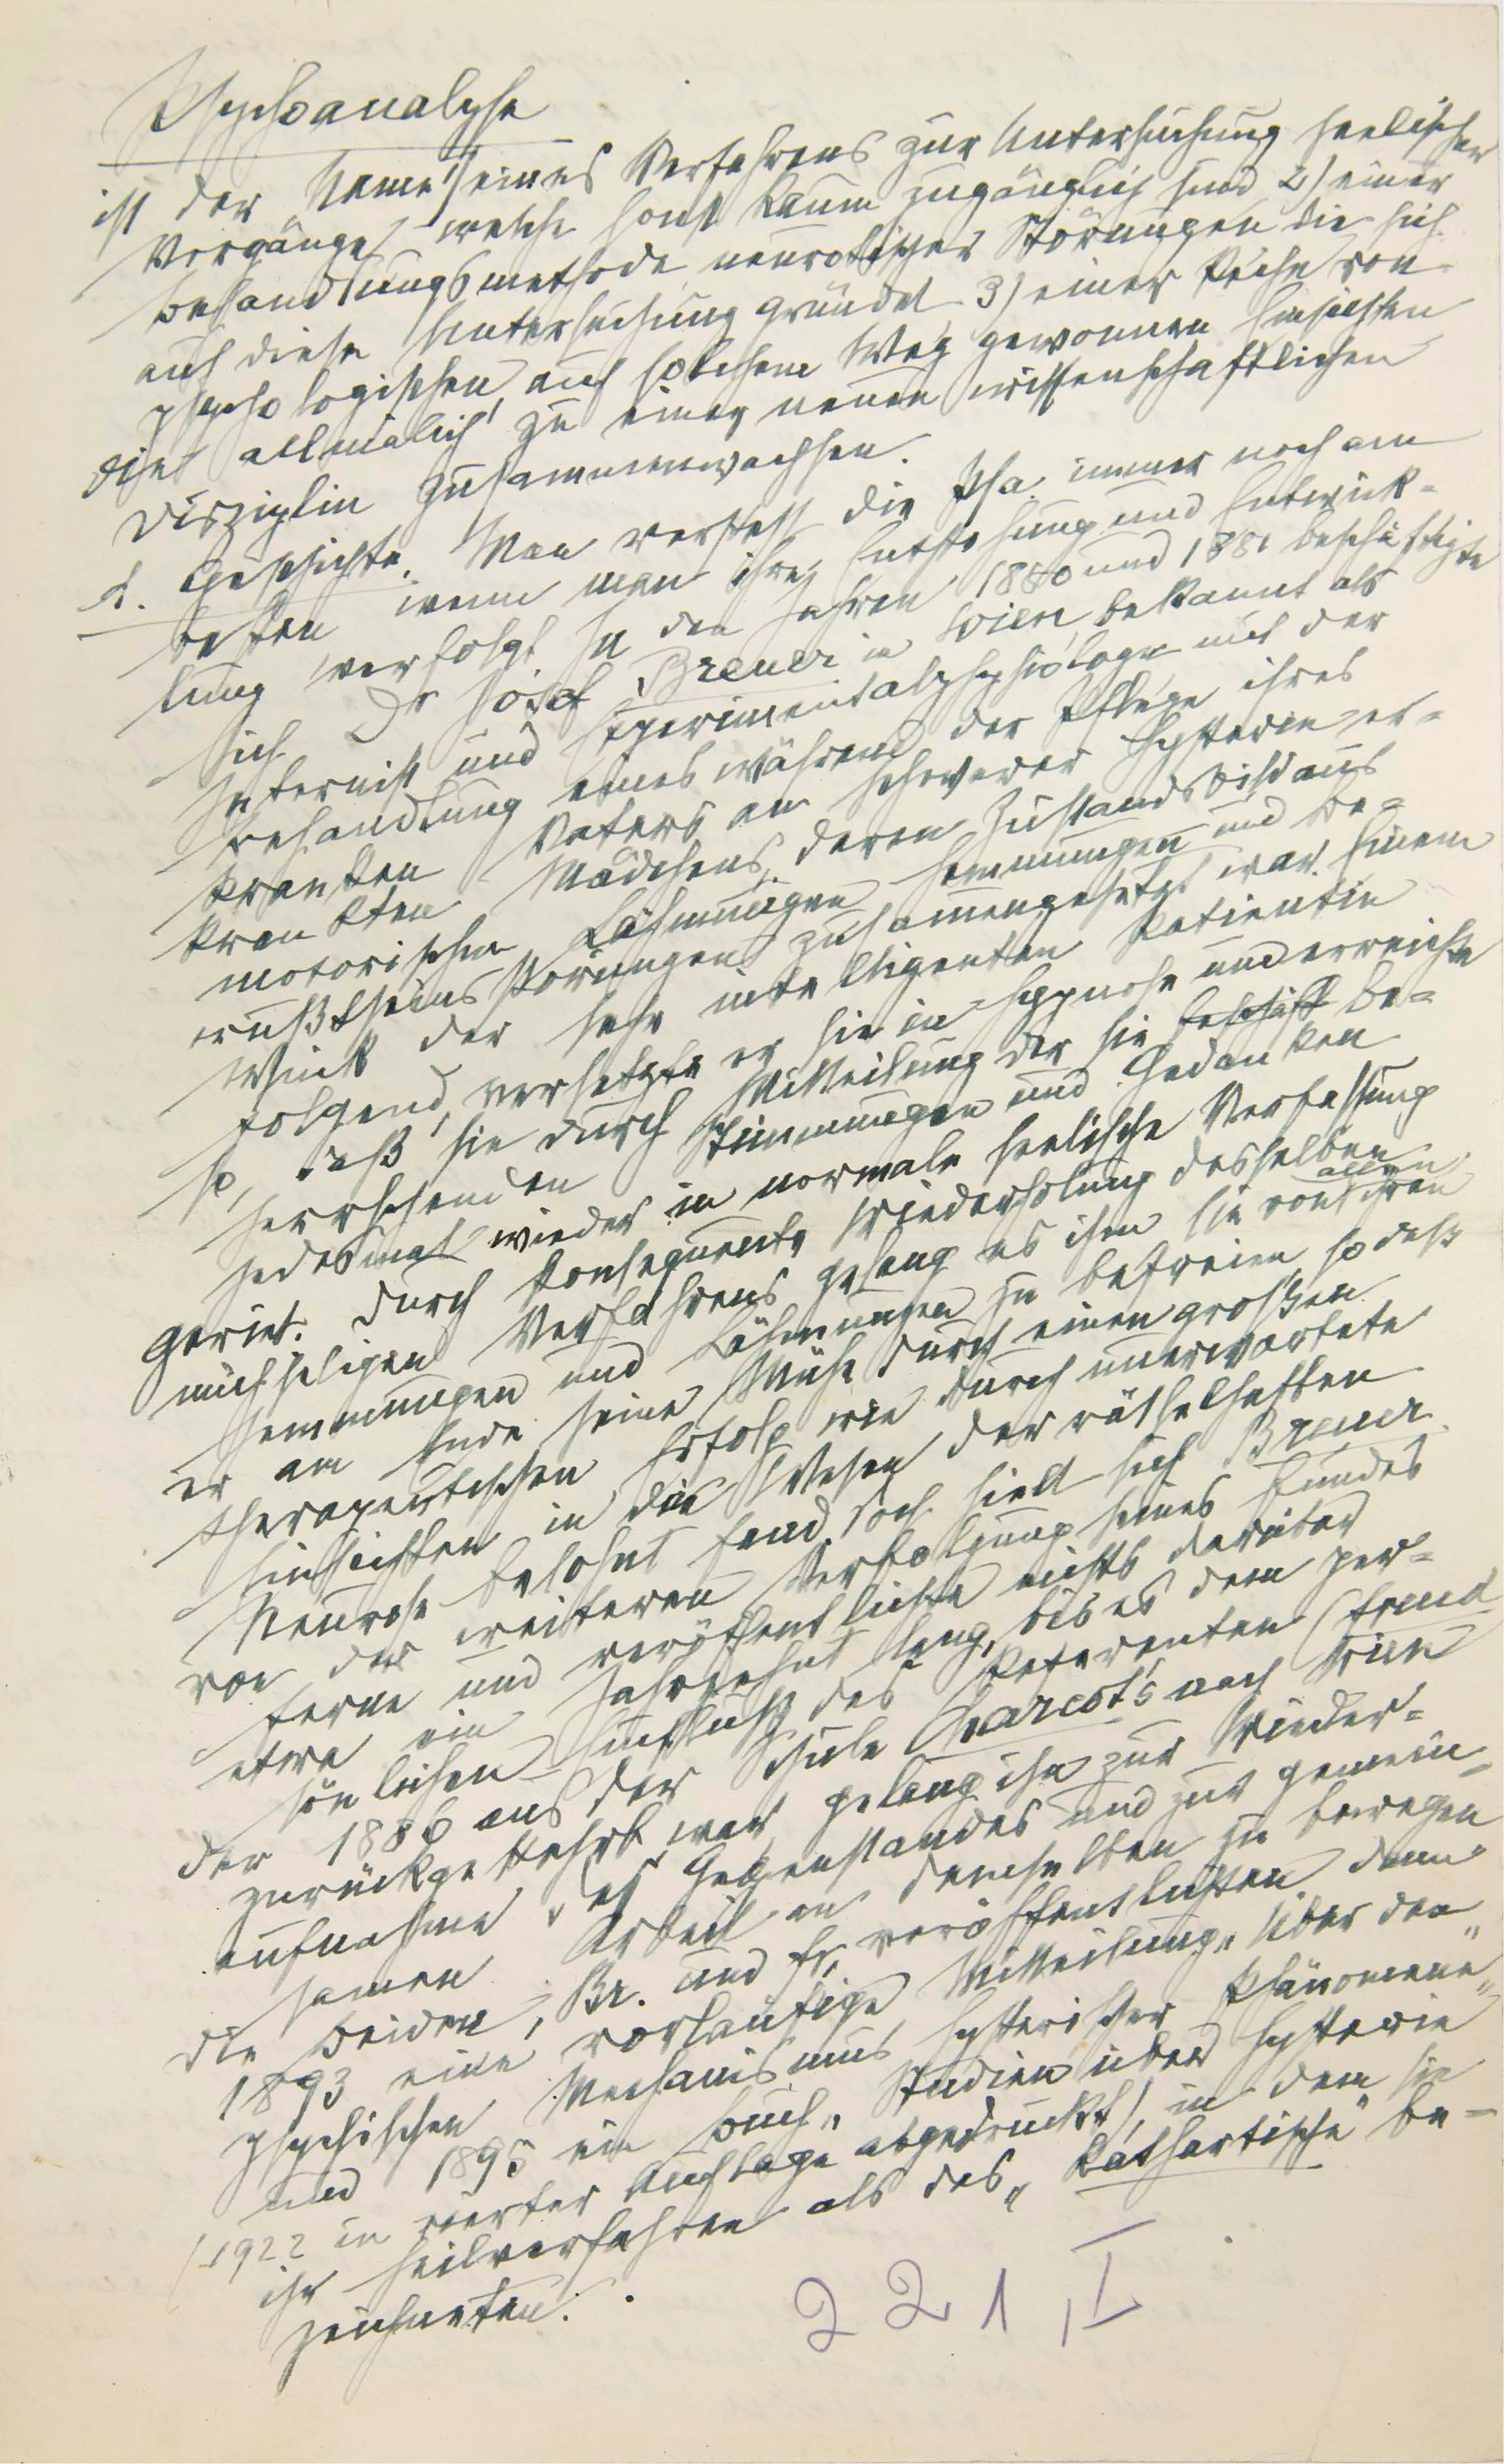 Psychoanalyse
ist der Name 1) eines Verfahrens zur Untersuchung seelischer
Vorgänge, welche sonst kaum zugänglich sind 2) einer
Behandlungsmethode neurotischer Störungen die sich
auf diese Untersuchung gründet 3) einer Reihe von
psychologischen, auf solchem Weg gewonnen Einsichten
die allmälich zu einer neuen wissenschaftlichen
Disziplin zusammenwachsen.
Geschichte. Man versteht die Psa. immer noch am
besten wenn man ihre Entstehung und Entwick-
lung verfolgt. In den Jahren 1880 und 1881 beschäftigte
sich Dr Josef Breuer in Wien, bekannt als
Internist und Experimentalphysiologe mit der
Behandlung eines während der Pflege ihres
kranken Vaters an schwerer Hysterie er-
krankten Mädchens, deren Zustandsbild aus
motorischen Lähmungen Hemmungen und Be-
wußtseinsstörungen zusamengesetzt war. Einem
Wink der sehr intelligenten Patientin
folgend, versetzte er sie in Hypnose und erreichte
so, daß sie durch Mitteilung der sie be-
herrschenden Stimmungen und Gedanken
jedesmal wieder in normale seelische Verfassung
geriet. Durch konsequente Wiederholung desselben
mühseligen Verfahrens gelang es ihm sie von allen ihren
Hemmungen und Lähmungen zu befreien, so daß
er am Ende seine Mühe durch einen großen
therapeutischen Erfolg wie durch unerwartete
Einsichten in das Wesen der räthselhaften
Neurose belohnt fand. Doch hielt sich Breuer
von der weiteren Verfolgung seines Fundes
ferne und veröffentlichte nichts darüber
etwa ein Jahrzehnt lang, bis es dem per-
sönlichen Einfluß des Referenten (Freud
der 1886 aus der Schule Charcot's nach Wien
zurückgekehrt war, gelang ihn zur Wieder-
aufnahme des Gegenstandes und zur gemein-
samen Arbeit an demselben zu bewegen
die beiden, Br. und Fr, veröffentlichten dann
1893 eine vorläufige Mitteilung „Über den
psychischen Mechanismus hysterischer Phänomene"
und 1895 ein Buch „Studien über Hysterie"
(1922 in vierter Auflage abgedruckt), in dem sie
ihr Heilverfahren als das „kathartische" be-
zeichneten.
221 I